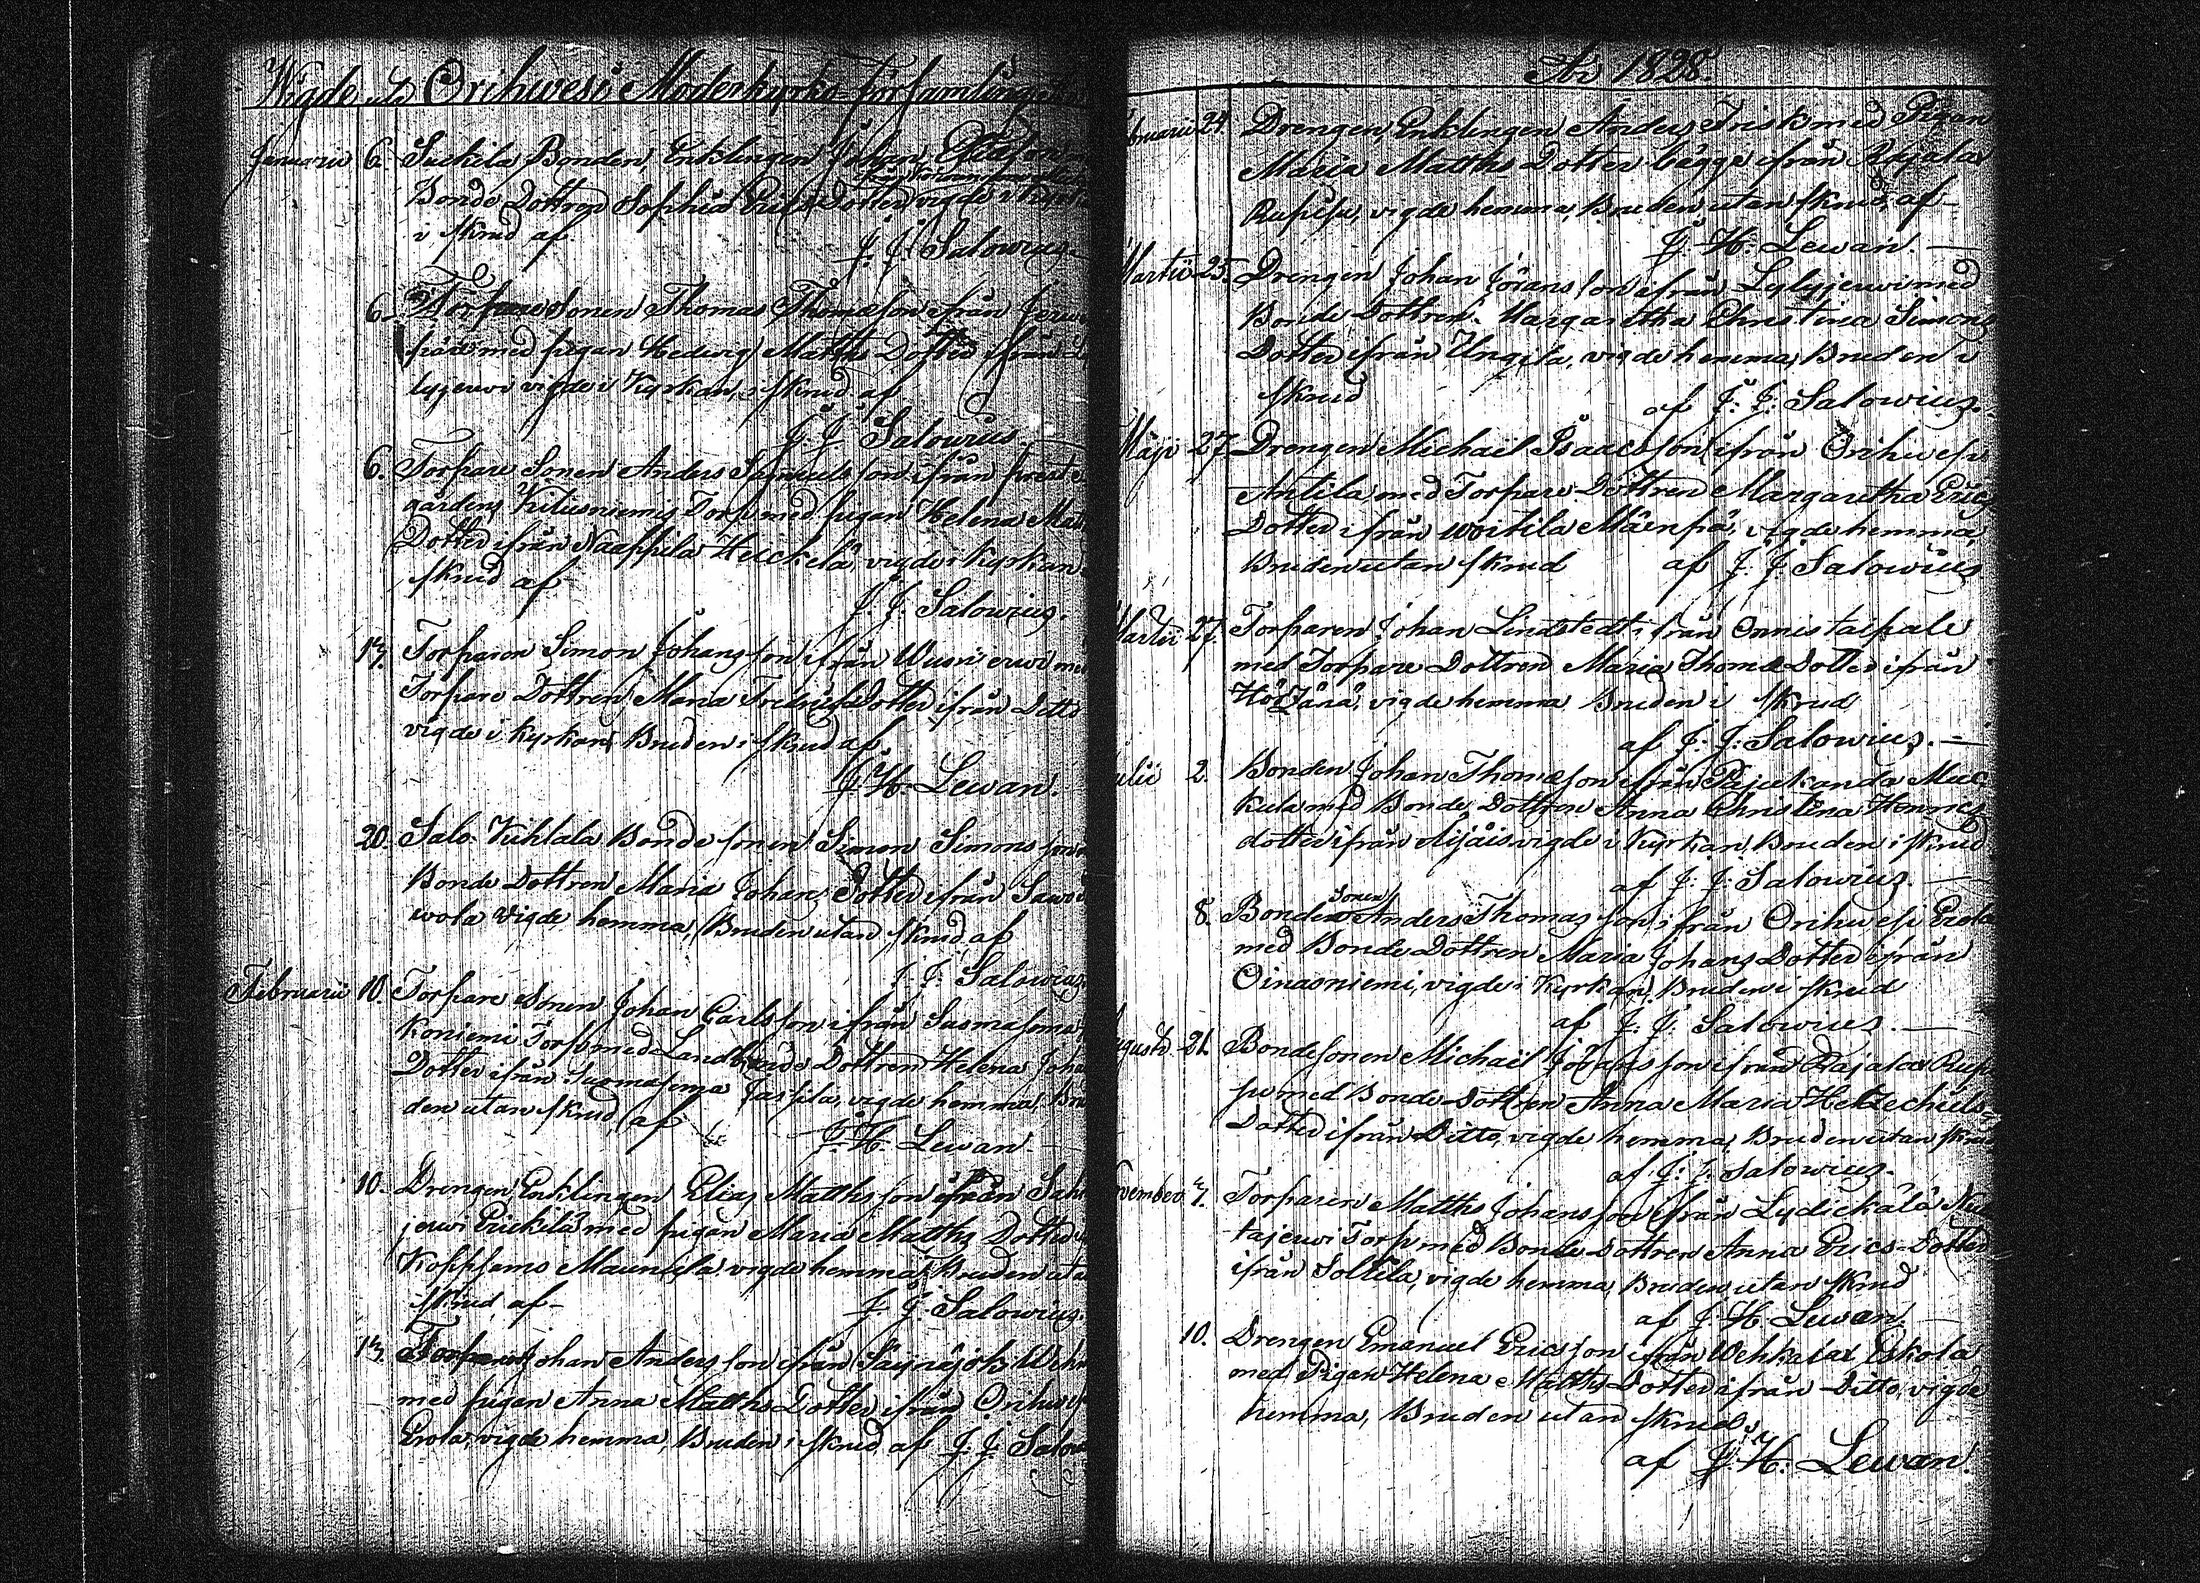 Wigde uti Orihwesi Moderkyrko-Församling
Januarii 6. Suckila Bonden, Enklingen Johan
Bonde Dottren Sophia Erics Dotter vigde i kyrkan
i skrud af
J. J. Salowius.
6. Torpare Sonen Thomas Thomæson ifrån
pää med pigan Hedewig Matths Dotter ifrån
lyjerwi vigde i Kyrkan, i skrud af
J. J. Salowius
6. Torpare Sonen Anders Samuels son ifrån Preste
gårdens Kitusniemis Torp med pigan Helena Mat
Dotter ifrån Naappila Heickelä, vigde i Kyrkan
skrud af
J. J. Salowius.
13. Torparen Simon Johans son ifrån
Torpare Dottren Maria Fredrics Dotter ifrån Ditto
vigde i Kyrkan, Bruden i skrud af
J. H. Lewan.
20. Salo Kuhtala Bonde sonen Simon Simons son
Bonde Dottren Maria Johans Dotter ifrån Sawo
wola vigde hemma, Bruden utan skrud, af
J. J. Salowius
Februarii 10. Torpare Sonen Johan Carls son ifrån Suomasema
koniemi Torp med Landbonde Dottren Helena Joha
Dotter ifrån Suomasema Jaspila, vigde hemma, Bru
den utan skrud, af
J. H. Lewan.
10. Drengen, Enklingen Elias Matths son ifrån Saht
jerwi Erickilä med pigan Maria Matths Dotter
Koppsamo Maunsila. vigde hemma, Bruden uta
skrud af
J. J. Salowius.
13. Johan Anders son ifrån Säynäjoki
med pigan Anna Matths Dotter ifrån Orihwesi
Erola, vigde hemma, Bruden i skrud, af J. J. Salow
År 1828.
bruarii 24. Drengen, Enklingen Anders Frisk med Pigan
Maria Matths Dotter bägge ifrån Rajalax
vigde hemma, Bruden utan skrud, af
J. H. Lewan.
Martii 25. Drengen Johan Jörans son ifrån Lylyjerwi med
Bonde Dottren Margaretha Christina Simons
Dotter ifrån Ungila, vigde hemma, Bruden i
skrud
af J. J. Salowius.
Maji 27. Drengen Michaël Isaacs son ifrån Orihwesi
Antila med Torpare Dottren Margaretha Erics
Dotter ifrån Woitila Mäenpä, vigde hemma,
Bruden utan skrud af J. J. Salowius
Martii 27. Torparen Johan Lindstedt ifrån Onnistaipale
med Torpare Dottren Maria Thomæ Dotter ifrån
vigde hemma Bruden i skrud
af J. J. Salowius.
ulii 2. Bonden Johan Thomæson ifrån Pajukanda Muc
kula med Bonde Dottren Anna Christina Henrics
dotter ifrån vigde i Kyrkan, Bruden i skrud
af J. J. Salowius.
8. Bonde Sonen Anders Thomas son ifrån Orihwesi Erola
med Bonde Dottren Maria Johans Dotter ifrån
Oinasniemi, vigde i Kyrkan, Bruden i skrud
af J. J. Salowius.
ugusti 21. Bondesonen Michaël Jörans son ifrån Rajalax Rup
pu med Bonde Dottren Anna Maria Hetzechiels
Dotter ifrån Ditto, vigde hemma, Bruden utan skru
af J. J. Salowius.
ovember 4. Torparen Matths Johans son ifrån Lydickälä
tajerwi Torp med Bonde Dottren Anna Erics Dotter
ifrån Soltila, vigde hemma, Bruden utan skrud
af J. H. Lewan.
10. Drengen Emanuel Erics son ifrån Wehkalax Eskola
med Pigan Helena Matths Dotter ifrån Ditto, vigde
hemma, Bruden utan skrud,
af J. H. Lewan.